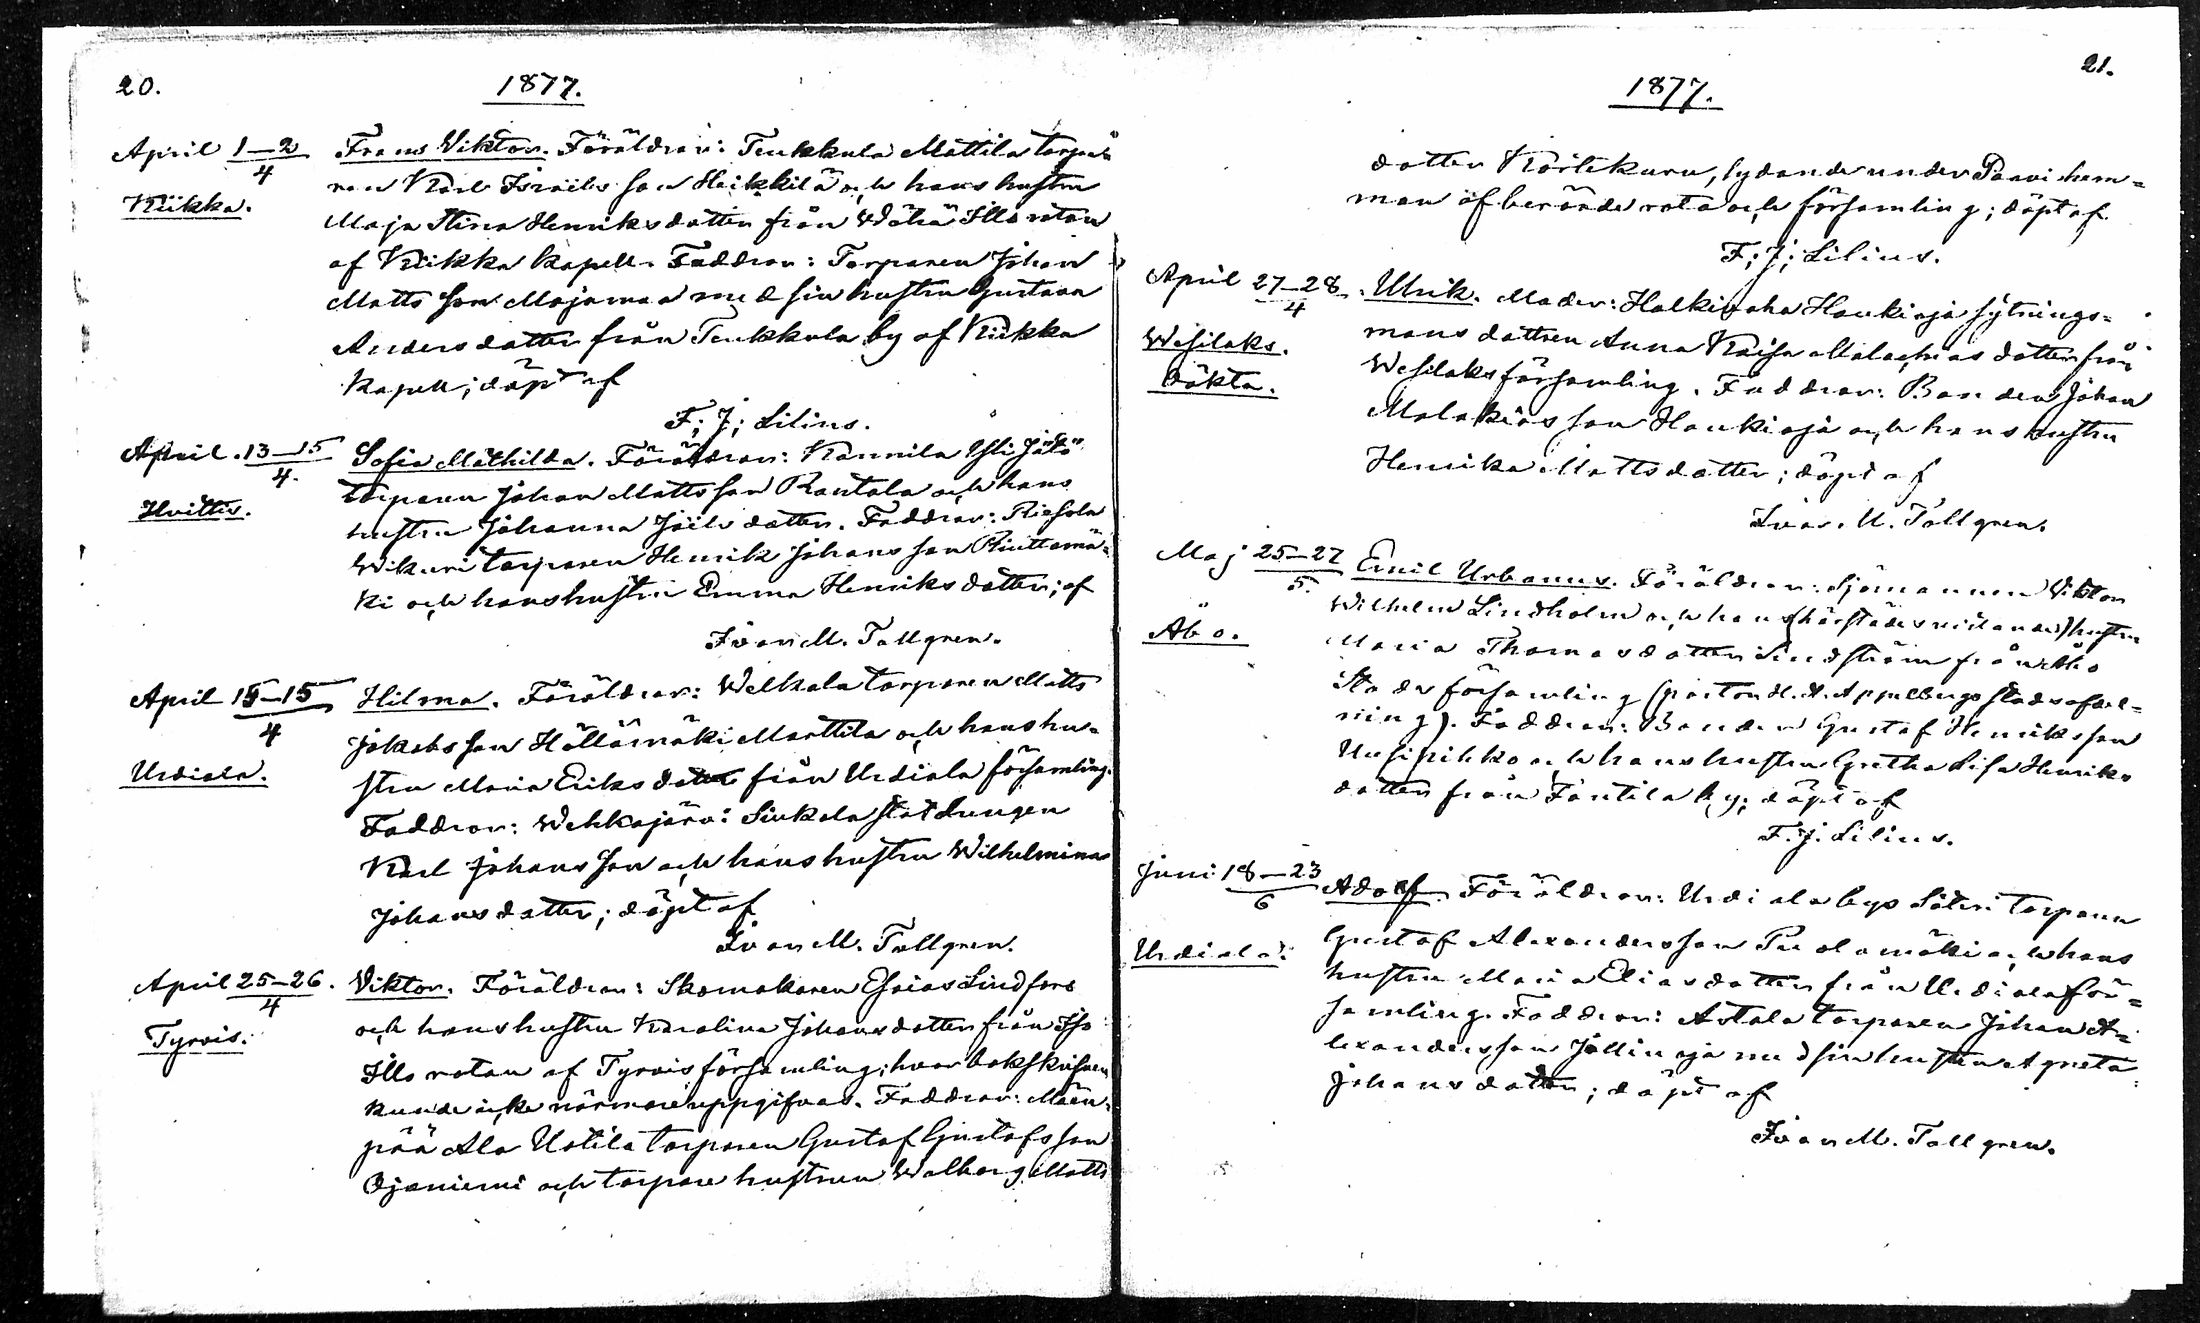 20.
1877.
April 1–2
4
Kiikka.
Frans Viktor. Föräldrar: Teukkula Mattila torpa-
ren Karl Israëls son Heikkilä och hans hustru
Maja Stina Henriksdotter från Wähä Illo rotan
af Kiikka kapell. Faddrar: Torparen Johan
Matts son Majamaa med sin hustru Gustava
Andersdotter från Teukkula by af Kiikka
kapell; döpt af
F; J; Lilius.
April. 13–15
4.
Hvittis.
Sofia Mathilda. Föräldrar: Kannila
torparen Johan Mattsson Rantala och hans
hustru Johanna Joëlsdotter. Faddrar: Riesola
Wikuri torparen Henrik Johansson
ki och hans hustru Emma Henriksdotter; af
Ivar M. Tallgren.
April 15–15
4
Urdiala.
Hilma. Föräldrar: Welkala torparen Matts
Jakobsson Höllämäki Marttila och hans hu-
stru Maria Eriksdotter från Urdiala församling.
Faddrar: Wehkajärvi Sinkala statdrängen
Karl Johansson och hans hustru Wilhelmina
Johansdotter; döpt af
Ivar M. Tallgren.
April 25–26.
4
Tyrvis.
Viktor. Föräldrar: Skomakaren Esaias Lindfors
och hans hustru Karolina Johansdotter från Iso
Illo rotan af Tyrvis församling; hvar bokskrifven
kunde icke närmare uppgifvas. Faddrar: Mäen-
pää Ala Uotila torparen Gustaf Gustafsson
Ojaniemi och torpare hustrun Walborg Matts
21.
1877.
dotter Körtekuru, lydande under Paavi hem-
man af berörde rota och församling; döpt af
F; J; Lilius.
April 27–28
4
Wesilaks.
Oäkta.
Ulrik. Moder: Halkivaha Haukioja sytnings-
mans dottren Anna Kaisa Malachias dotter från
Wesilaks församling. Faddrar: Bonden Johan
Malakiasson Haukioja och hans hustru
Henrika Mattsdotter; döpt af
Ivar. M. Tallgren.
Maj 25–27
5.
Åbo.
Emil Urbanus. Föräldrar: Sjömannen Viktor
Wilhelm Lindholm och hans (härstädes vistande) hustru
Maria Thomasdotter Lindström från Åbo
Stads församling (pastor H. A. Appelbergs stadsafdel-
ning). Faddrar: Bonden Gustaf Henriksson
Uusipihko och hans hustru Gretha Lisa Henriks
dotter från Fäntilä by; döpt af
F. J. Lilius.
Juni 18–23
6
Urdiala.
Adolf. Föräldrar: Urdiala bys Säteri torparen
Gustaf Alexandersson Puolamäki och hans
hustru Maria Eliasdotter från Urdiala för-
samling. Faddrar: Astala torparen Johan A-
lexandersson Jällinoja med sin hustru Agneta
Johansdotter; döpt af
Ivar M. Tallgren.